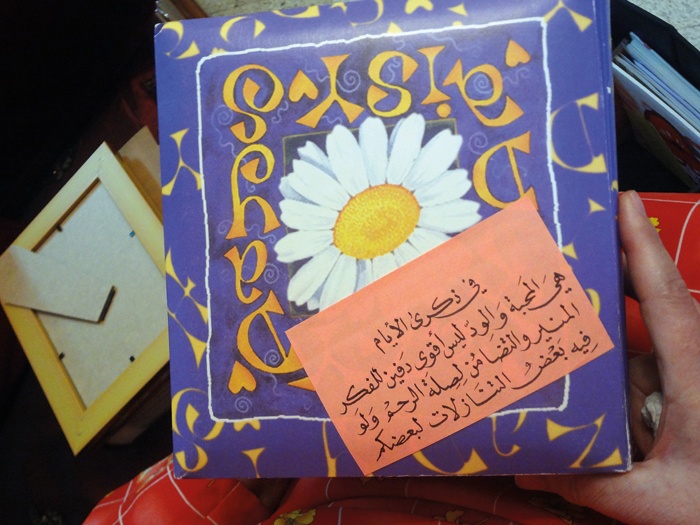 Daisy
Days
في ذكرى الأيام
هي المحبة والود ليس أقوى دفين للفكر
المنير والتضامن لصلة الرحم ولو
فيه بعض التنازلات لبعضكم